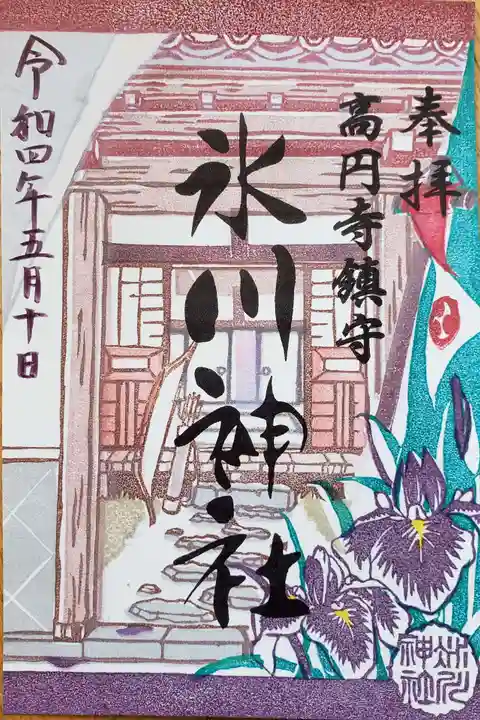 奉拝
高円寺鎮守
氷川神社
令和四年五月十日
氷川神社